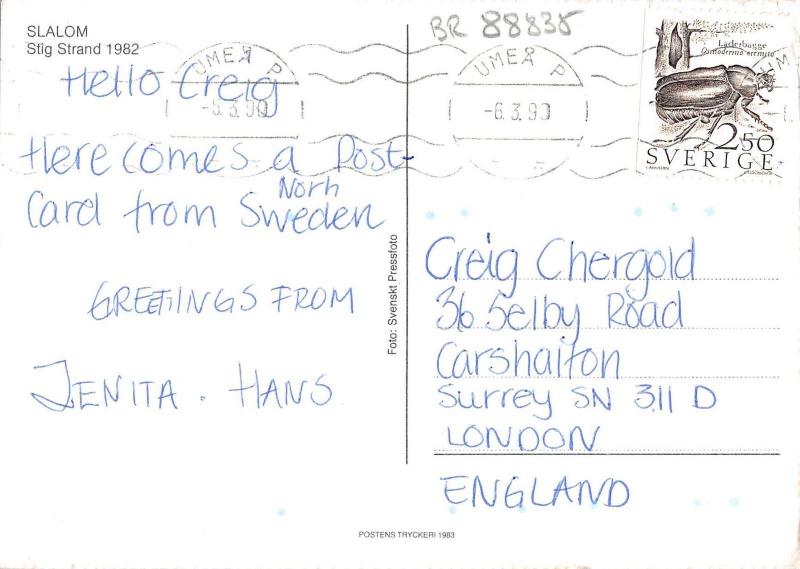 SLALOM
Stig Strand 1982
BR 88835
UMEÅ P
-6.3.90
UMEÅ P
-6.3.90
Läderbagge
Osmoderma eremita
2.50
SVERIGE
Hello Creig
Here comes a Post-
Card from Norh Sweden
GREETIINGS FROM
JENITA . HANS
Foto: Svenskt Pressfoto
Creig Chergold
36 Selby Road
Carshaiton
Surrey SN 311 D
LONDON
ENGLAND
POSTENS TRYCKERI 1983